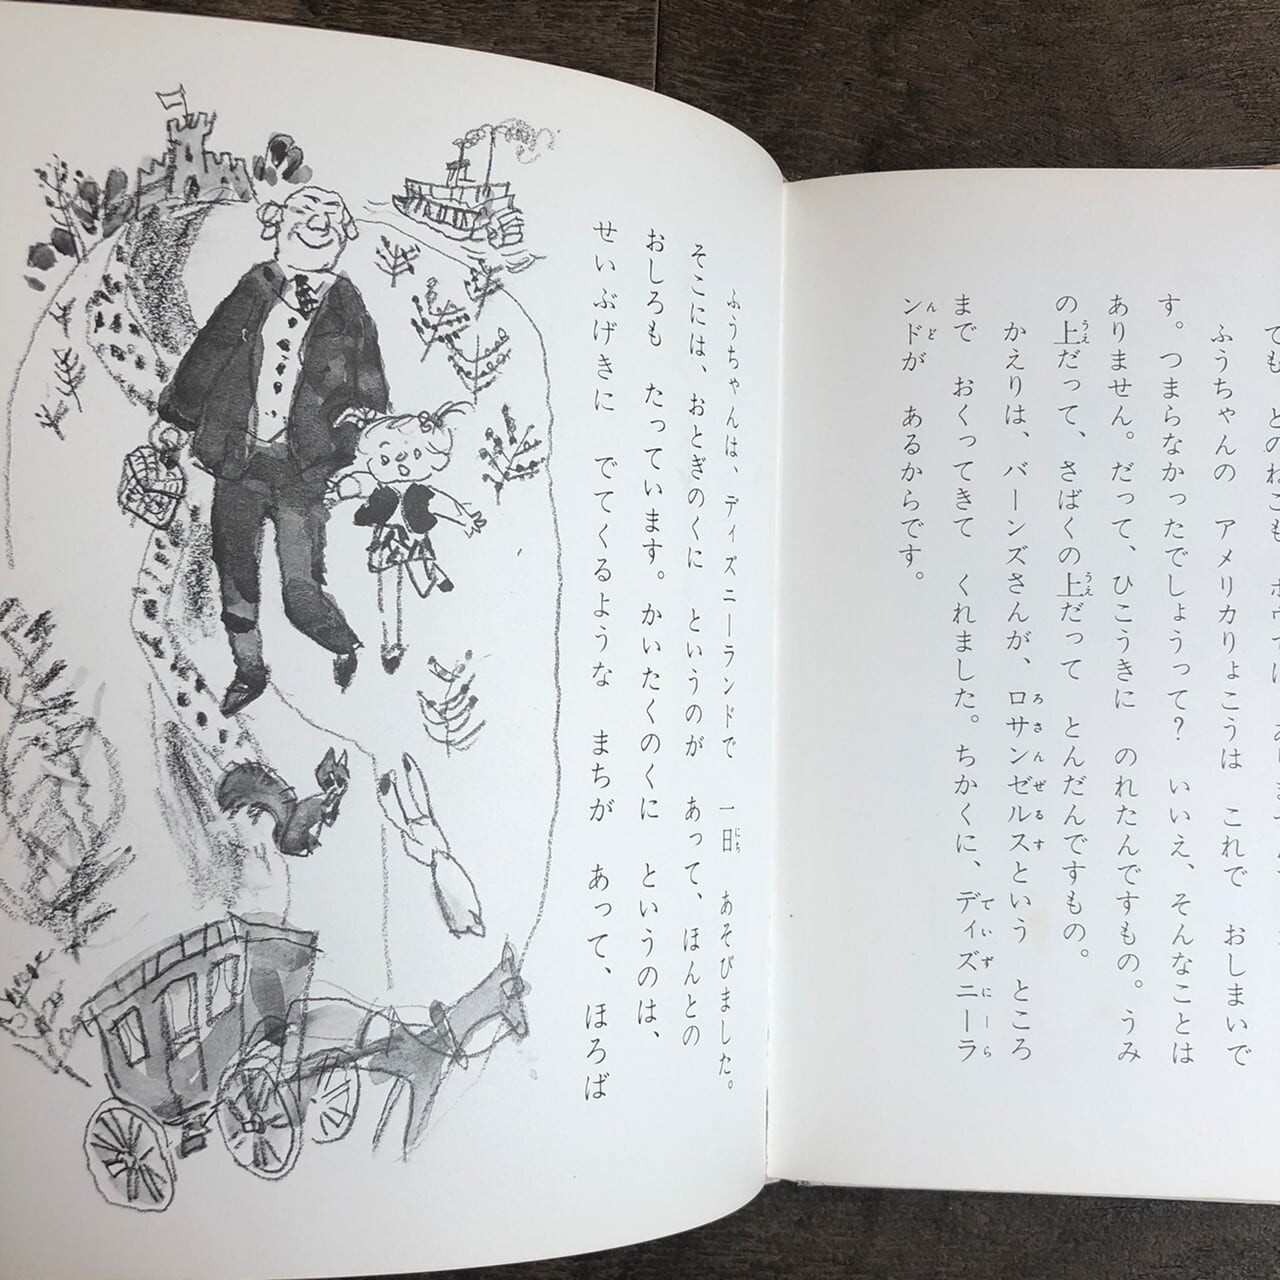 でも どのねこも ボウでは
ふうちゃんの アメリカりょこうは これで おしまいで
す。つまらなかったでしょうって? いいえ、そんなことは
ありません。だって、ひこうきに のれたんですもの。うみ
の上だって、さばくの上だって とんだんですもの。
うえ うえ
かえりは、バーンズさんが、ロサンゼルスという ところ
ろさんぜるす
まで おくってきて くれました。ちかくに、ディズニーラ
でぃずにーら
ンドが あるからです。
んど
ふうちゃんは、ディズニーランドで 一日 あそびました。
にち
そこには、おとぎのくに というのが あって、ほんとの
おしろも たっています。かいたくのくに というのは、
せいぶげきに でてくるような まちが あって、ほろば